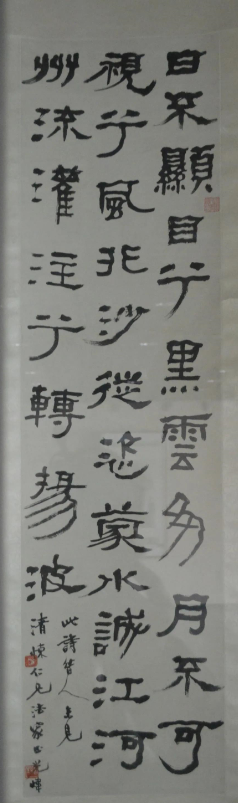 日不顯目兮黑雲多月不可
視兮風非沙從恣蒙水誠江河
州流灌注兮轉揚波
此詩昔人
清 仁兄法家